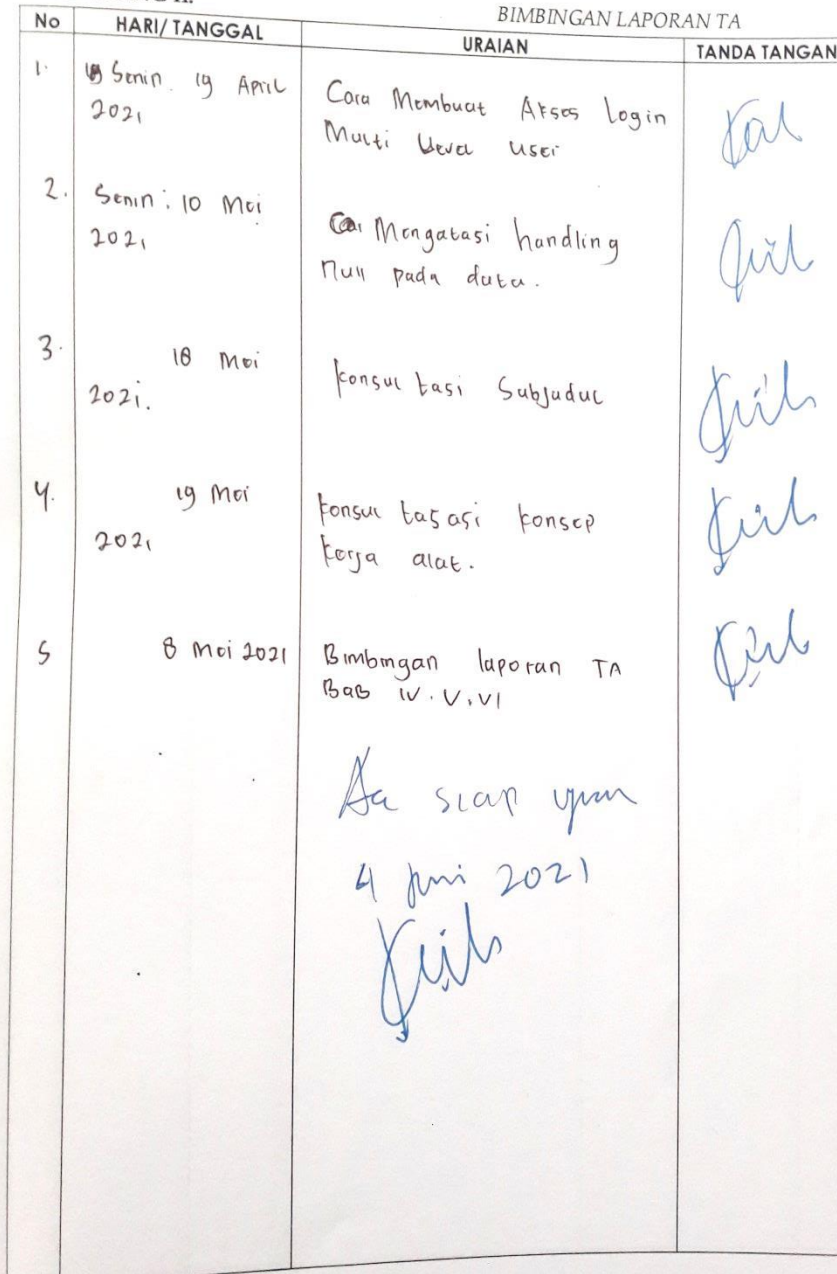 BIMBINGAN LAPORAN TA
No HARI/TANGGAL URAIAN TANDA TANGAN
1. Senin. 19 April
2021
Cara Membuat Akses Login
Multi Level user
2. Senin: 10 Mei
2021
Mengatasi handling
null pada data.
3. 18 Mei
2021.
konsultasi Subjudul
4. 19 Mei
2021
konsultasasi konsep
kerja alat.
5 8 Mei 2021
Bimbingan laporan TA
Bab IV. V. VI
siap
4 Juni 2021